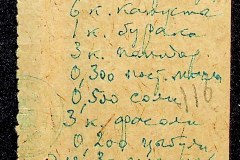 6 к. капуста
1 к. бурака
3 к. помидор
0,300 пост. масла
0,500 соли
116
3 к. фасоли
0,200 цыбули